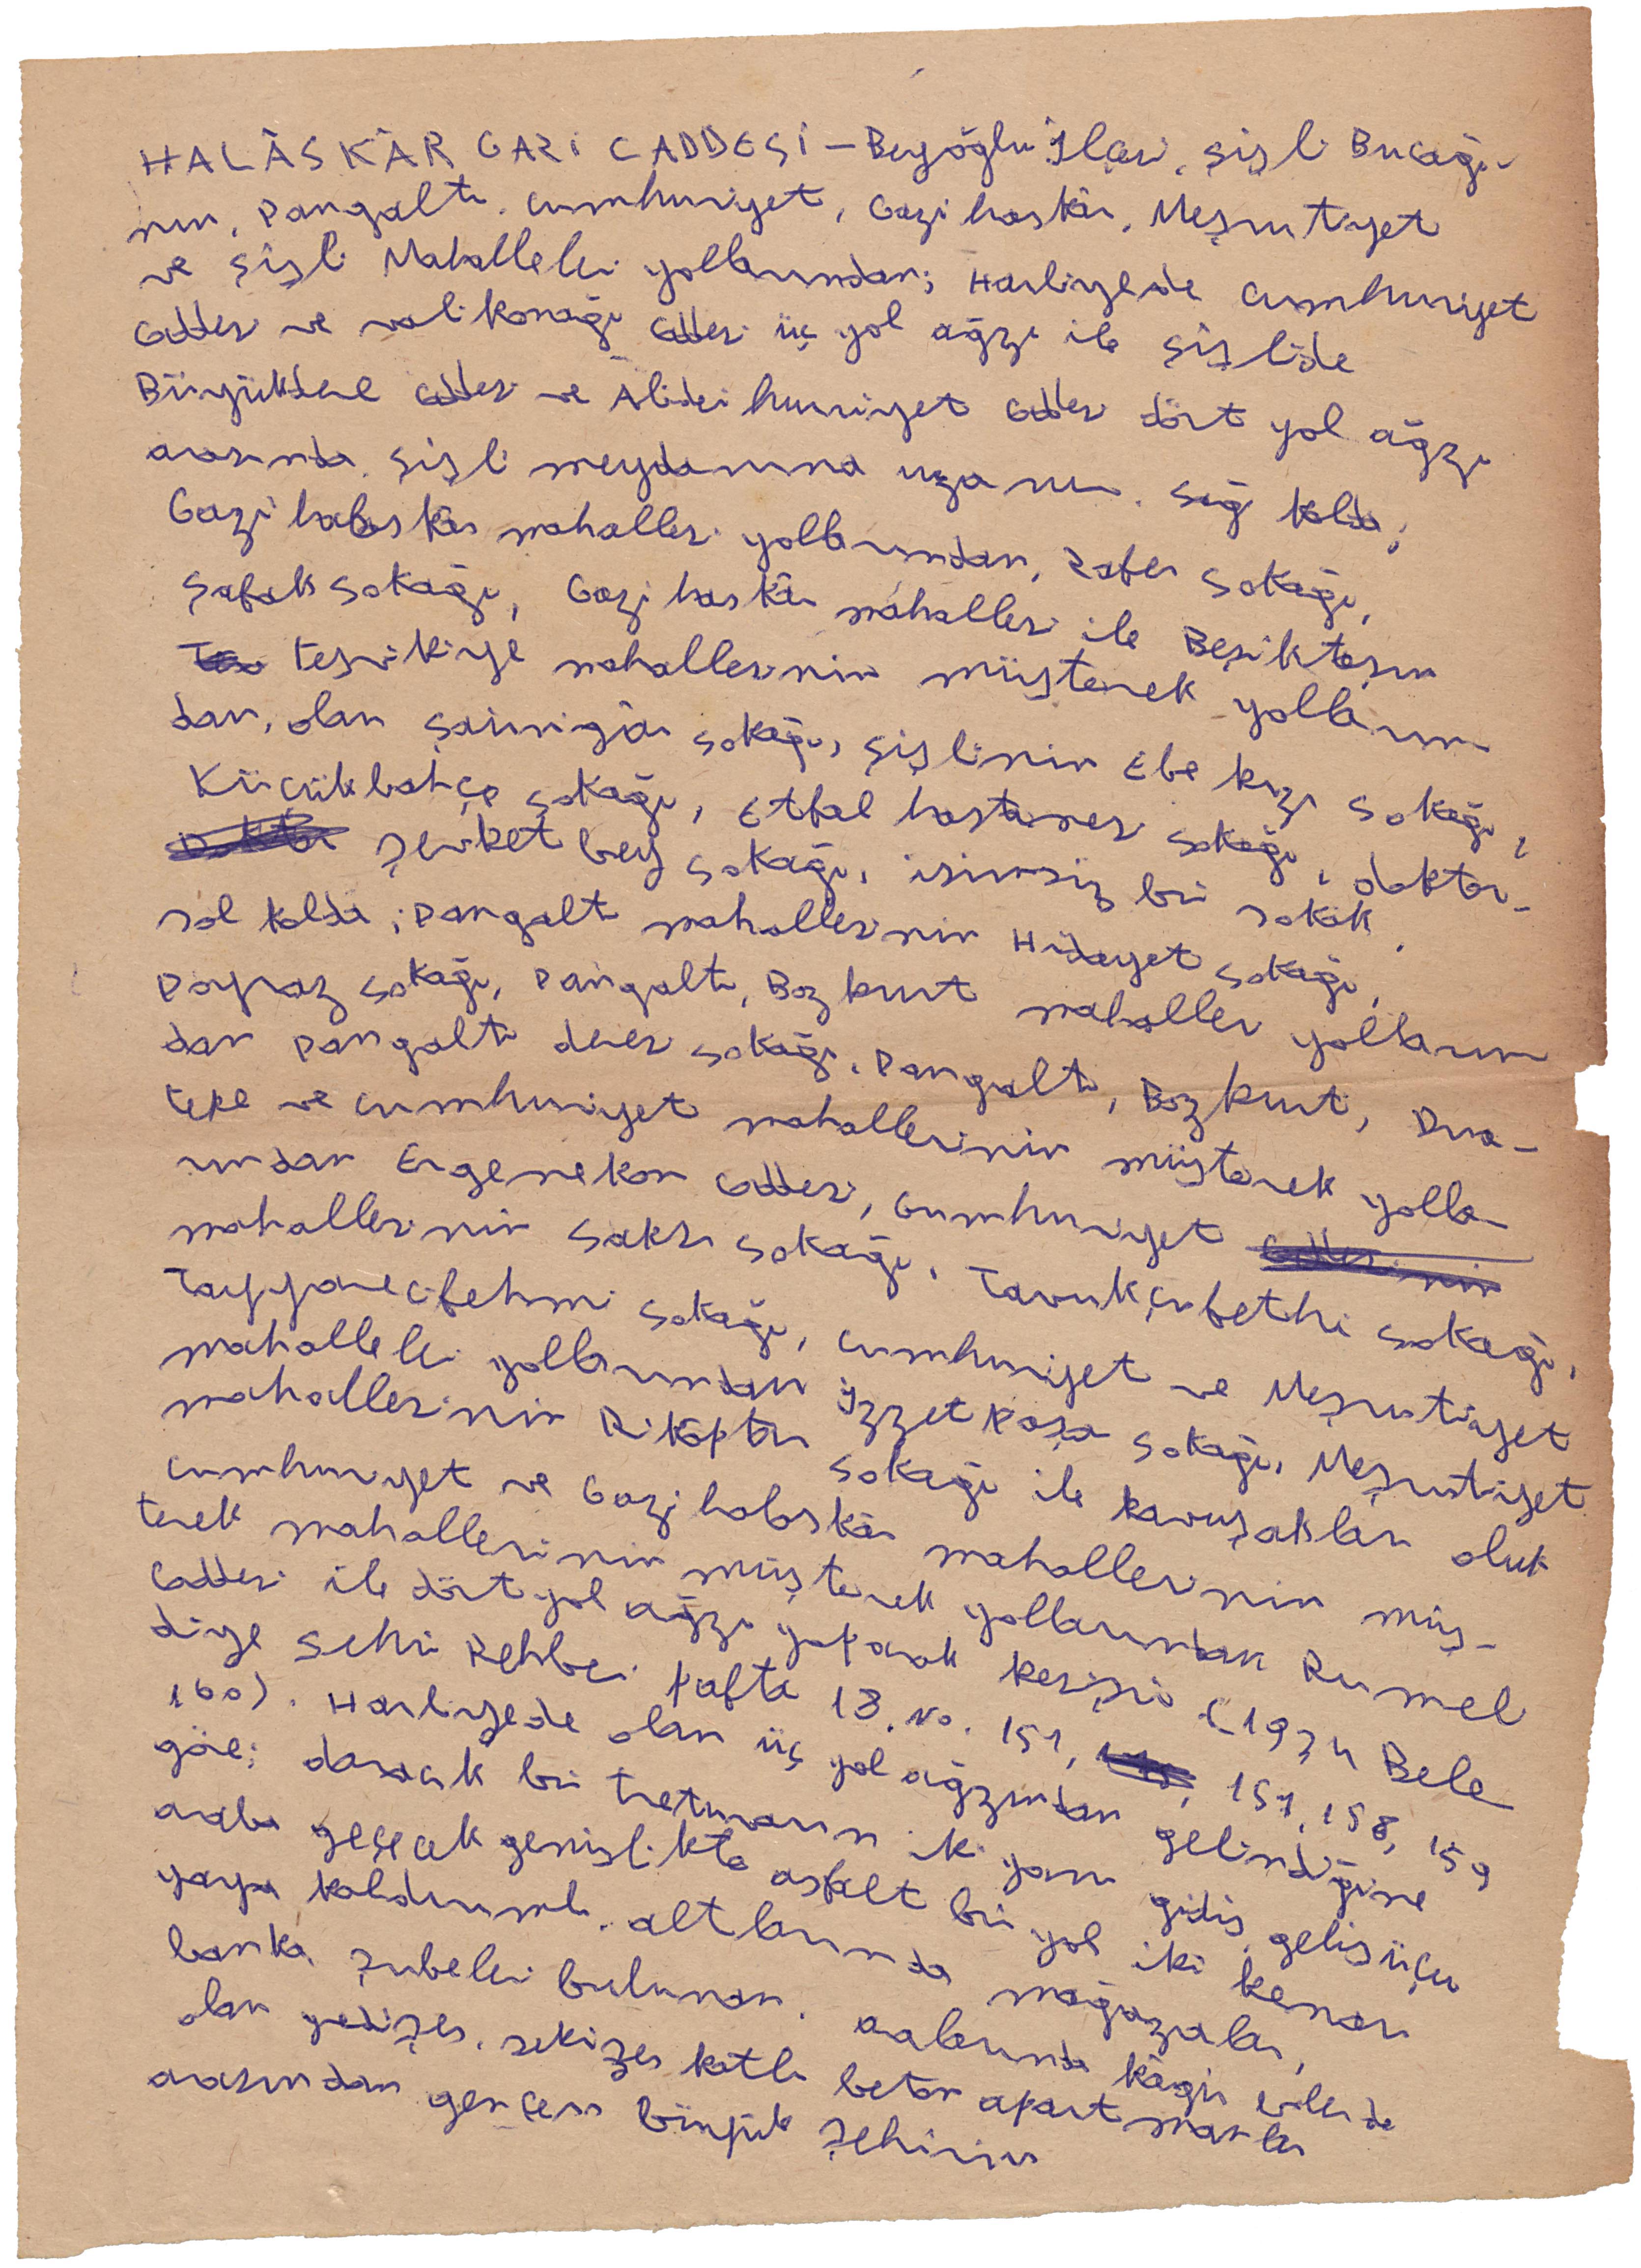 HALÂSKÂR GAZİ CADDESİ – Beyoğlu İlçesi, Şişli Bucağı-
nın, Pangaltı, Cumhuriyet, Gazi haskâr, Meşrutiyet
ve Şişli Mahalleleri yollarından; Harbiyede Cumhuriyet
Caddesi ve Valikonağı Caddesi üç yol ağzı ile Şişlide
Büyükdere Caddesi ve Abidei hürriyet Caddesi dört yol ağzı
arasında Şişli meydanına uzanır. Sağ kolda;
Gazi halaskâr mahallesi yollarından, Zafer Sokağı,
Şafak Sokağı, Gazi haskâr mahallesi ile Beşiktaşın
Teşvikiye mahallesinin müşterek yolların-
dan, olan Şairnigâr sokağı, Şişlinin Ebe kızı Sokağı,
Küçükbahçe Sokağı, Etfal hastanesi Sokağı, doktor-
Şevket bey Sokağı, isimsiz bir sokak,
sol kolda; Pangaltı mahallesinin Hidayet Sokağı,
Poyraz Sokağı, Pangaltı, Bozkurt mahallesi yolların
dan Pangaltı deresi Sokağı, Pangaltı, Bozkurt, Dua-
tepe ve Cumhuriyet mahallesinin müşterek yolla-
rından Ergenekon Caddesi, Cumhuriyet
mahallesinin Saksı Sokağı, Tavukçufethi Sokağı,
Tayyarecifehmi Sokağı, Cumhuriyet ve Meşrutiyet
mahalleleri yollarından İzzet Paşa Sokağı, Meşrutiyet
mahallesinin Sokağı ile kavuşakları olup
Cumhuriyet ve Gazi halaskâr mahallesinin müş-
terek mahallesinin müşterek yollarından Rumeli
Caddesi ile dört yol ağzı yaparak kesişir (1934 Bele
diye Şehir Rehberi pafta 18. No. 151, 157, 158, 159
160). Harbiyede olan üç yol ağzından gelindiğine
göre; daracık bir tretuvarın iki yanı gidiş, geliş üçer
araba geçecek genişlikte asfalt bir yol iki kenarı
yaya kaldırımlı. altlarında mağazalar,
banka şubeleri bulunan, aralarında kâgir evlerde
olan yedişer, sekizer katlı beton apartmanlar
arasından geçen büyük şehirin